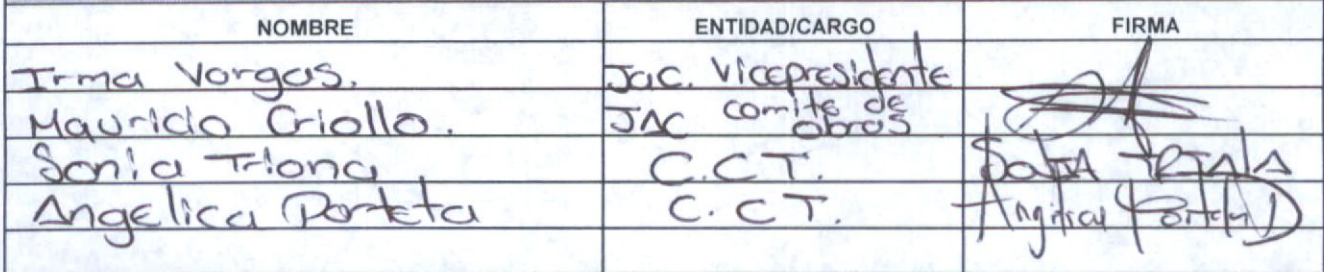 NOMBRE ENTIDAD/CARGO FIRMA
Irma Vargas. Jac. Vicepresidente
Mauricio Criollo. JAC comite de obras
Sonia Triana C.C.T. SONIA TRIANA
Angelica Porteta C.CT.